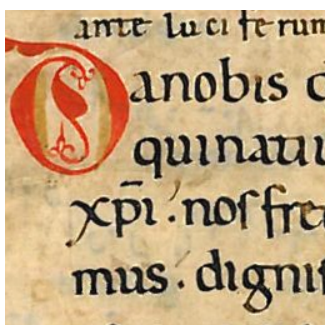 ante luciferum
Da nobis d
qui natiu
xp̄i. nos fre
mus. digni